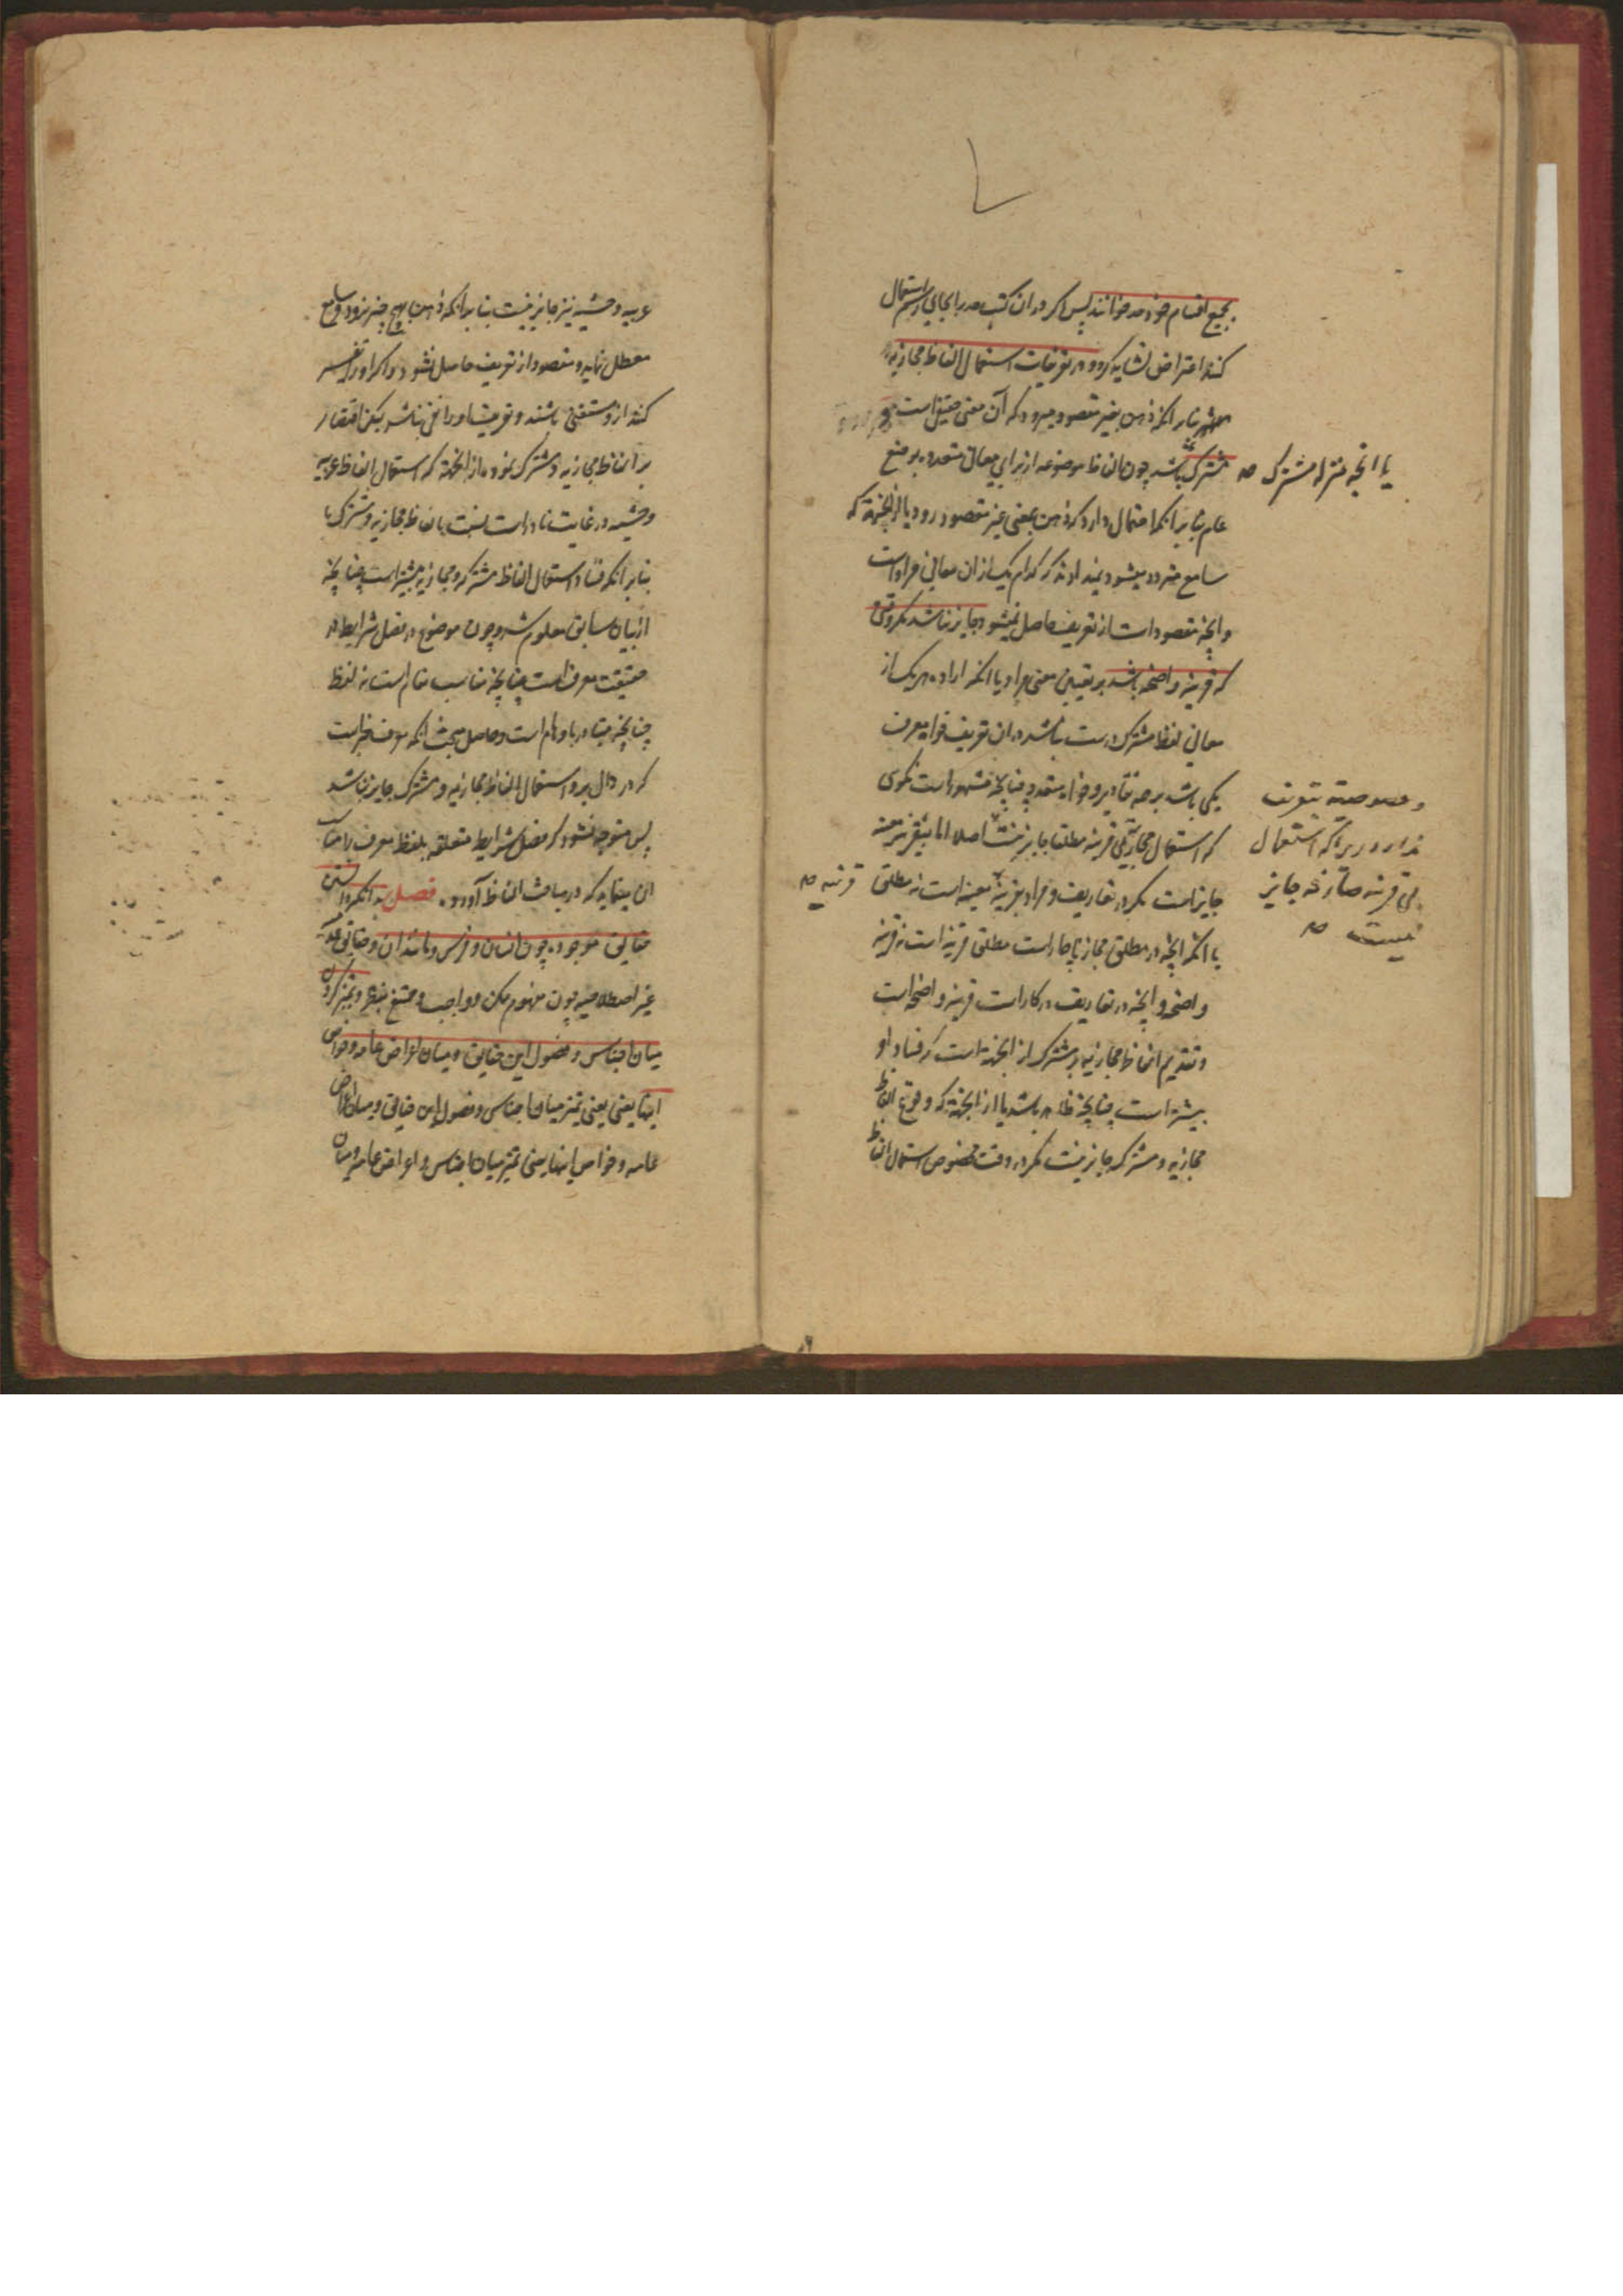 بجمیع اقسام خود حد خوانند پس اکر در ان کتب حد را بجای رسم استعمال
کنند اعتراض نشاید کرد و در تعریفات استعمال الفاظ مجازیه
بنابر انکه ذهن بغیر مقصود میرود که آن معنی حقیقی است
مشترک باشد چون الفاظ موضوعه از برای معانی متعدده بوضع
یا انچه بمنزله مشترک صح
عام بنابر انکه احتمال دارد که ذهن بمعنی غیر مقصود رود یا از انجهة که
سامع متردد میشود و نمیداند که کدام یک از ان معانی مراد است
و انچه مقصود است از تعریف حاصل نمیشود جایز نباشد مکر وقتی
که قرینه واضحه باشد بر تعیین معنی مراد یا انکه اراده هر یک از
معانی لفظ مشترک درست باشد در ان تعریف خواه معرف
یکی باشد بر همه تقادیر و خواه متعدد چنانچه مشهور است نکوی
که استعمال مجاز بی قرینه مطلقا جایز نیست اصلا اما بی قرینه معینه
جایز است مکر در تعاریف و مراد بقرینه معینه است نه مطلق
قرینه صح
و خصوصیتی بتعریف
ندارد زیرا که استعمال
بی قرینه صارفه جایز
نیست صح
یا انکه انچه در مطلق مجاز ناچار است مطلق قرینه است نه قرینه
واضحه و انچه در تعاریف در کار است قرینه واضحه است
و تقدیم الفاظ مجازیه بر مشترک از انجهة است که فساد او
بیشتر است چنانچه ظاهر باشد یا از انجهة که وقوع الفاظ
مجازیه و مشترکه جایز نیست مکر در وقت مخصوص استعمال الفاظ
غریبه وحشیه نیز جایز نیست بنابر انکه ذهن بهیچ چیز نرود و سامع
معطل نماید و مقصود از تعریف حاصل نشود و اکر او را تفسیر
کنند از او مستغنی باشند و تعریف او را نفعی نباشد لیکن اقتصار
بر الفاظ مجازیه و مشترک نمود از انجهة که استعمال الفاظ غریبه
وحشیه در غایت نادر است نسبت بالفاظ مجازیه و مشترک یا
بنابر انکه فساد استعمال الفاظ مشترکه و مجازیه بیشتر است چنانچه
از بیان سابق معلوم شد و چون موضوع در فصل شرایط در
حقیقت معرف است چنانچه مناسب مقام است نه لفظ
چنانچه متبادر باوهام است و حاصل مبحث انکه معرف چیز است
که در دال بر او استعمال الفاظ مجازیه و مشترک جایز نباشد
پس متوجه نشود که فصل شرایط متعلقه بلفظ معرف را مناسب
ان مینماید که در مباحث الفاظ آورد فصل بدانکه دانستن
حقایق موجوده چون انسان و فرس و مانند ان و حقایق
غیر اصطلاحیه چون مفهوم ممکن و واجب و ممتنع و تمیز کردن
میان اجناس و فصول این حقایق و میان اعراض عامه و خواص
اینها یعنی یعنی تمیز میان اجناس و فصول این حقایق و میان اعراض
عامه و خواص اینها یعنی تمیز میان اجناس و اعراض عامه و میان